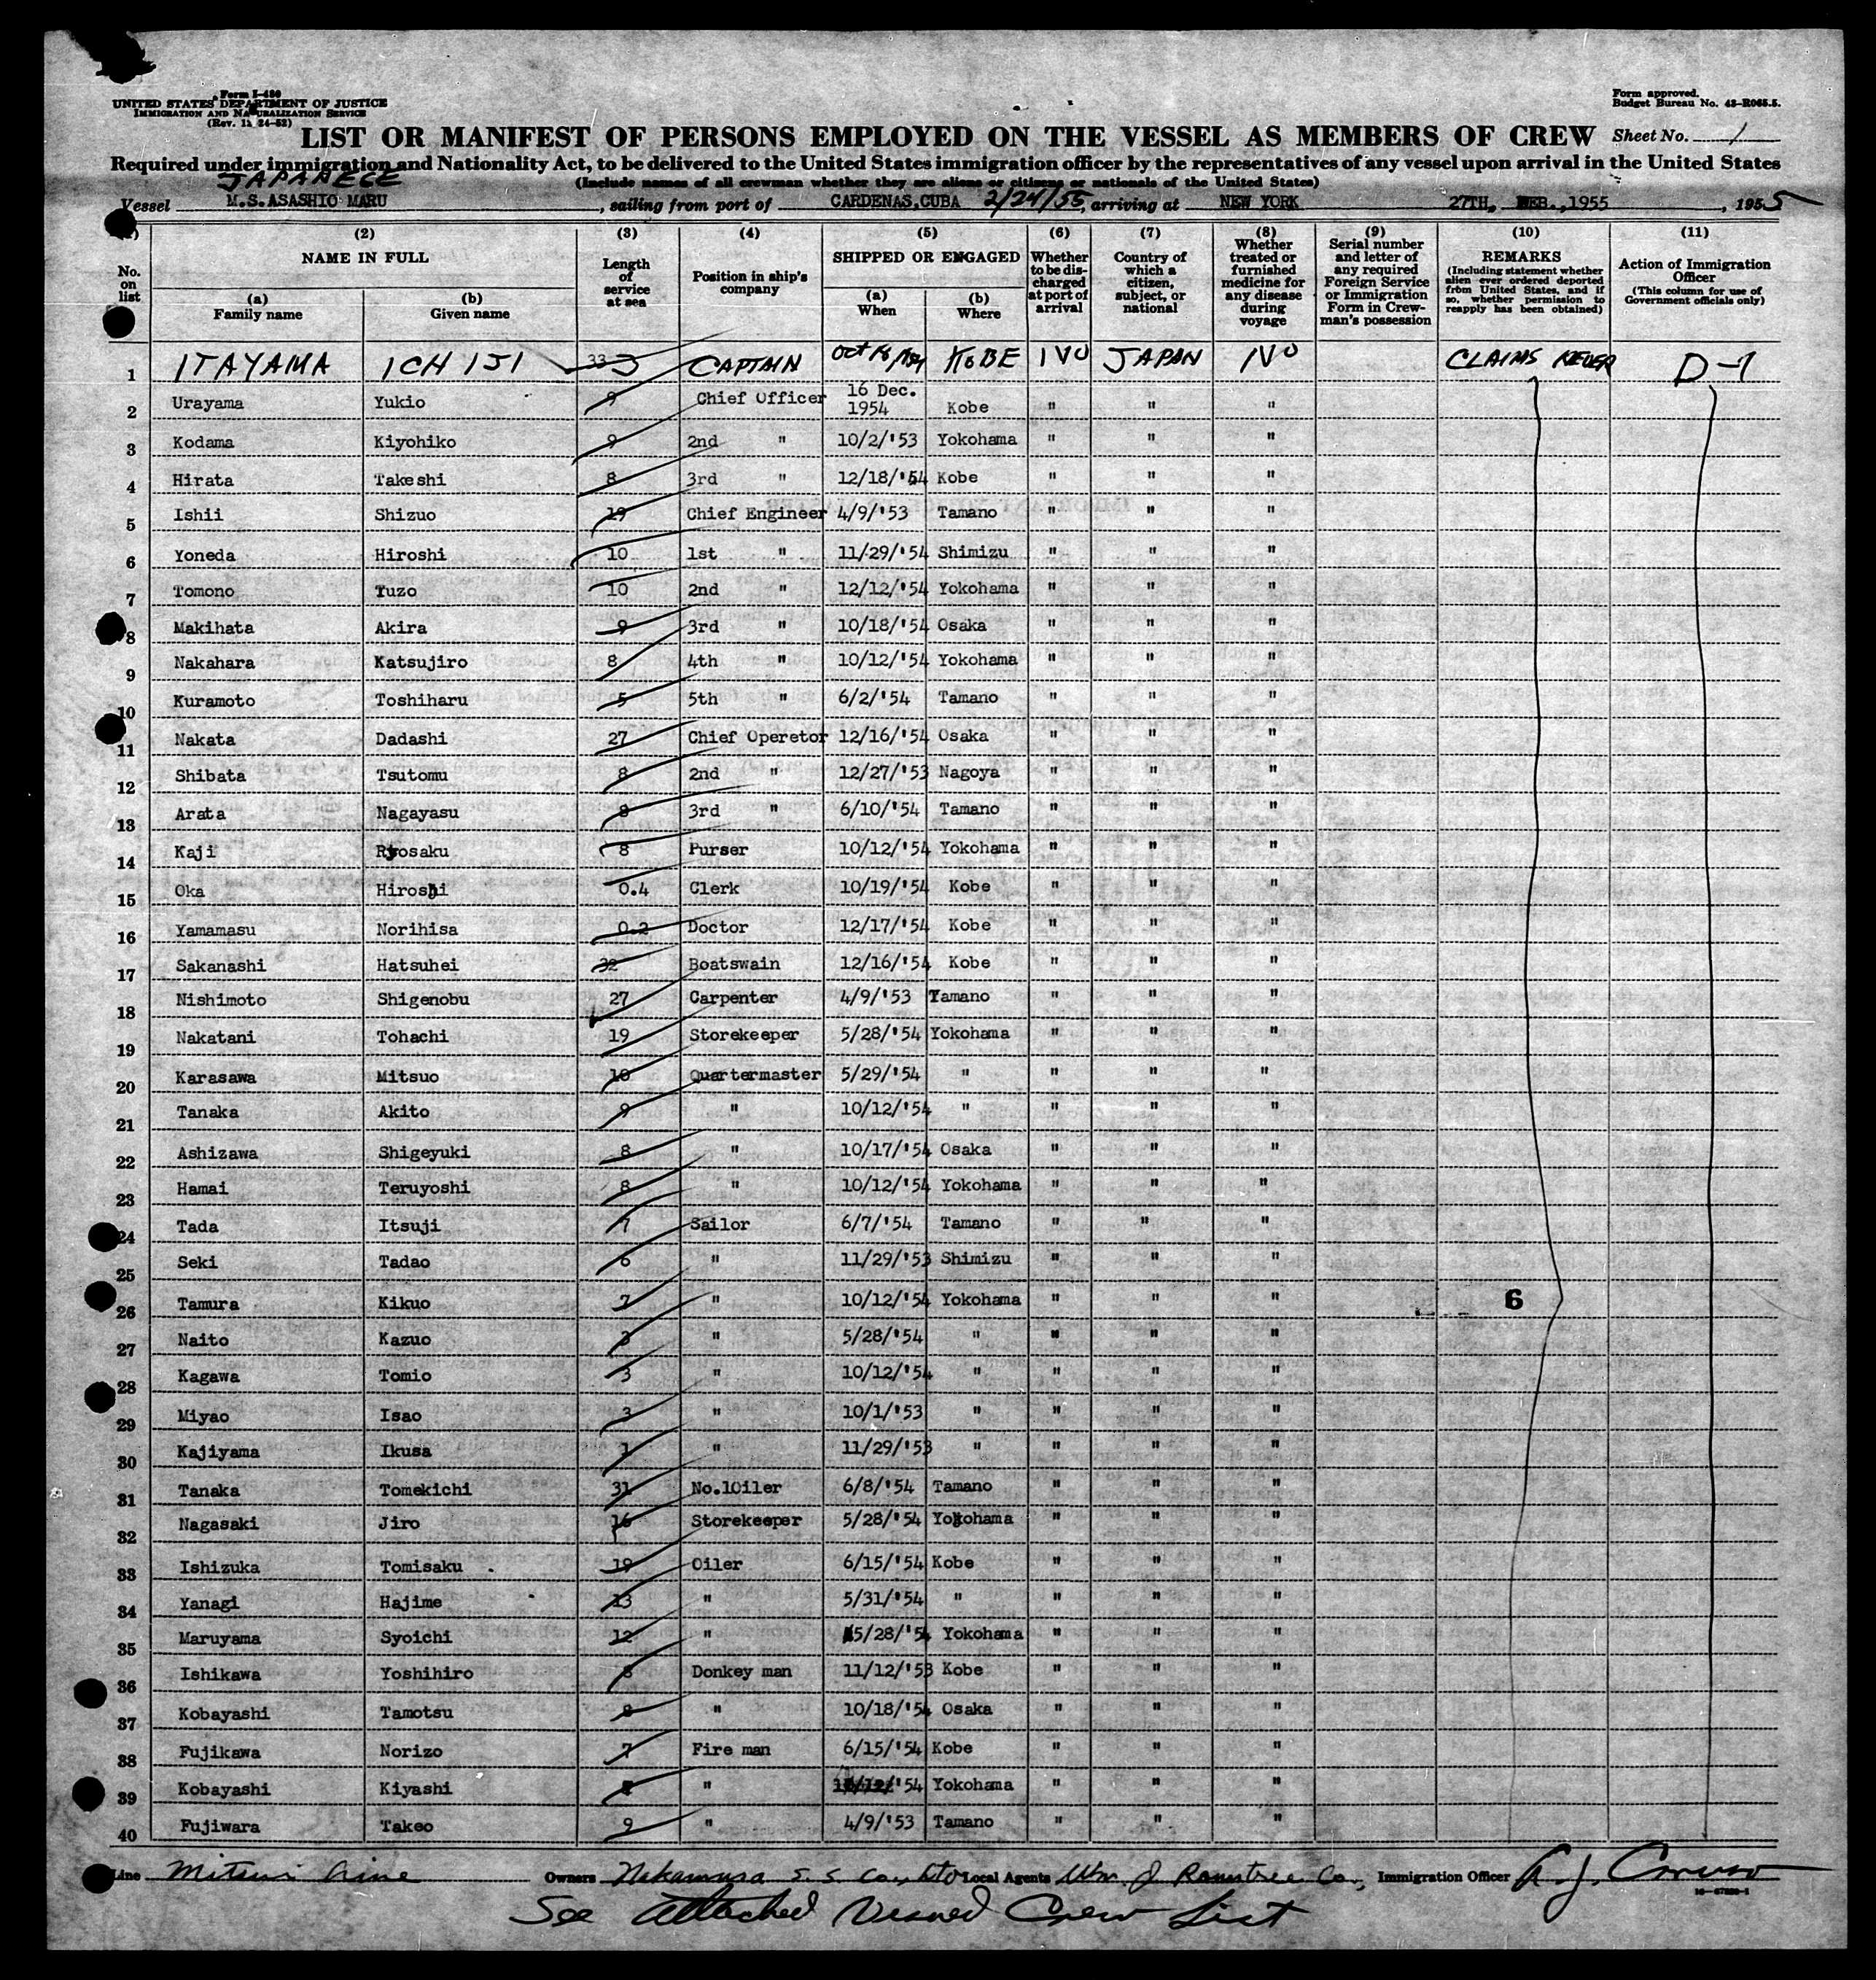 Form I-480
UNITED STATES DEPARTMENT OF JUSTICE
IMMIGRATION AND NATURALIZATION SERVICE
(Rev. 11-24-52)
Form approved.
Budget Bureau No. 43-R065.5.
LIST OR MANIFEST OF PERSONS EMPLOYED ON THE VESSEL AS MEMBERS OF CREW Sheet No. 1
Required under immigration and Nationality Act, to be delivered to the United States immigration officer by the representatives of any vessel upon arrival in the United States
JAPANECE (Include names of all crewman whether they are aliens or citizens or nationals of the United States)
Vessel M.S.ASASHIO MARU, sailing from port of CARDENAS,CUBA 2/24/55, arriving at NEW YORK 27TH, FEB.,1955, 1955
(2) (3) (4) (5) (6) (7) (8) (9) (10) (11)
No. on list NAME IN FULL (a) Family name (b) Given name Length of service at sea Position in ship's company SHIPPED OR ENGAGED (a) When (b) Where Whether to be discharged at port of arrival Country of which a citizen, subject, or national Whether treated or furnished medicine for any disease during voyage Serial number and letter of any required Foreign Service or Immigration Form in Crewman's possession REMARKS (Including statement whether alien ever ordered deported from United States, and if so, whether permission to reapply has been obtained) Action of Immigration Officer (This column for use of Government officials only)
1 ITAYAMA ICHIJI 33 CAPTAIN Oct 18/1954 KOBE NO JAPAN NO CLAIMS NEVER D-1
2 Urayama Yukio 9 Chief Officer 16 Dec. 1954 Kobe " " "
3 Kodama Kiyohiko 9 2nd " 10/2/'53 Yokohama " " "
4 Hirata Takeshi 8 3rd " 12/18/'54 Kobe " " "
5 Ishii Shizuo 19 Chief Engineer 4/9/'53 Tamano " " "
6 Yoneda Hiroshi 10 1st " 11/29/'54 Shimizu " " "
7 Tomono Yuzo 10 2nd " 12/12/'54 Yokohama " " "
8 Makihata Akira 9 3rd " 10/18/'54 Osaka " " "
9 Nakahara Katsujiro 8 4th " 10/12/'54 Yokohama " " "
10 Kuramoto Toshiharu 5 5th " 6/2/'54 Tamano " " "
11 Nakata Dadashi 27 Chief Operetor 12/16/'54 Osaka " " "
12 Shibata Tsutomu 8 2nd " 12/27/'53 Nagoya " " "
13 Arata Nagayasu 8 3rd " 6/10/'54 Tamano " " "
14 Kaji Ryosaku 8 Purser 10/12/'54 Yokohama " " "
15 Oka Hiroshi 0.4 Clerk 10/19/'54 Kobe " " "
16 Yamamasu Norihisa 0.2 Doctor 12/17/'54 Kobe " " "
17 Sakanashi Hatsuhei 32 Boatswain 12/16/'54 Kobe " " "
18 Nishimoto Shigenobu 27 Carpenter 4/9/'53 Tamano " " "
19 Nakatani Tohachi 19 Storekeeper 5/28/'54 Yokohama " " "
20 Karasawa Mitsuo 10 Quartermaster 5/29/'54 " " " "
21 Tanaka Akito 9 " 10/12/'54 " " " "
22 Ashizawa Shigeyuki 8 " 10/17/'54 Osaka " " "
23 Hamai Teruyoshi 8 " 10/12/'54 Yokohama " " "
24 Tada Itsuji 7 Sailor 6/7/'54 Tamano " " "
25 Seki Tadao 6 " 11/29/'53 Shimizu " " "
26 Tamura Kikuo 7 " 10/12/'54 Yokohama " " " 6
27 Naito Kazuo 3 " 5/28/'54 " " " "
28 Kagawa Tomio 3 " 10/12/'54 " " " "
29 Miyao Isao 3 " 10/1/'53 " " " "
30 Kajiyama Ikusa 1 " 11/29/'53 " " " "
31 Tanaka Tomekichi 31 No.1Oiler 6/8/'54 Tamano " " "
32 Nagasaki Jiro 16 Storekeeper 5/28/'54 Yokohama " " "
33 Ishizuka Tomisaku 19 Oiler 6/15/'54 Kobe " " "
34 Yanagi Hajime 13 " 5/31/'54 " " " "
35 Maruyama Syoichi 12 " 5/28/'54 Yokohama " " "
36 Ishikawa Yoshihiro 8 Donkey man 11/12/'53 Kobe " " "
37 Kobayashi Tamotsu 8 " 10/18/'54 Osaka " " "
38 Fujikawa Norizo 7 Fire man 6/15/'54 Kobe " " "
39 Kobayashi Kiyashi " '54 Yokohama " " "
40 Fujiwara Takeo 9 " 4/9/'53 Tamano " " "
Line Mitsui Line Owners Nakamura S.S. Co., Ltd Local Agents Wm. J. Rountree Co., Immigration Officer A. J. Caruso
See Attached Visaed Crew List